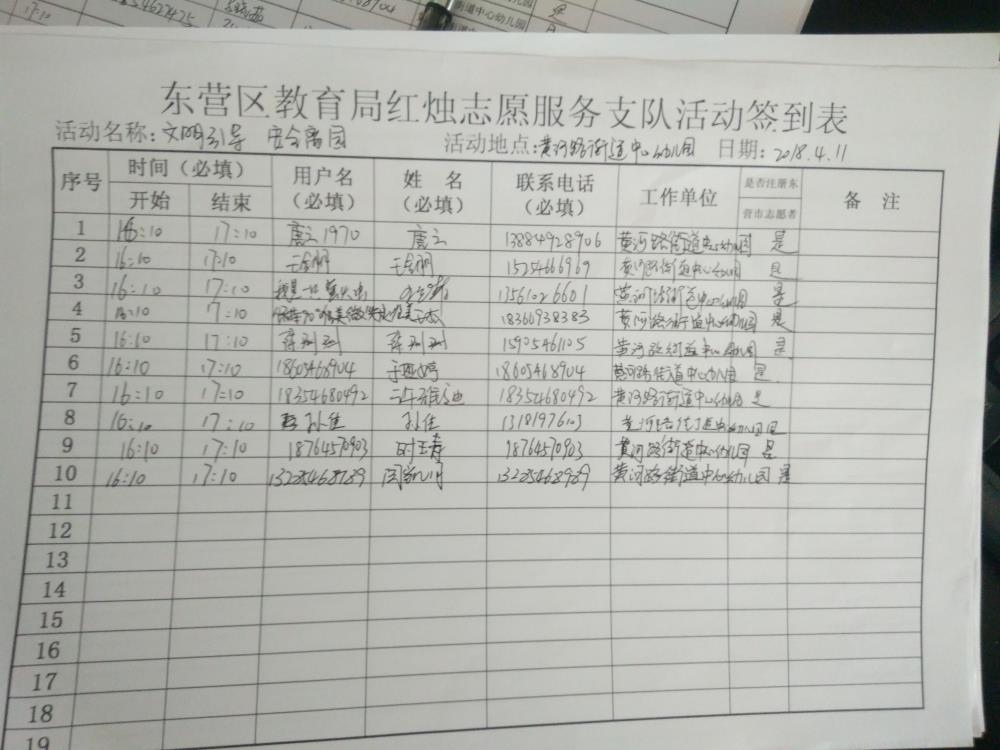 东营区教育局红烛志愿服务支队活动签到表
活动名称:文明引导 安全离园 活动地点:黄河路街道中心幼儿园 日期:2018.4.11
序号 时间(必填) 用户名(必填) 姓 名(必填) 联系电话(必填) 工作单位 是否注册东营市志愿者 备 注
开始 结束
1 16:10 17:10 唐云1970 唐云 13884928906 黄河路街道中心幼儿园 是
2 16:10 17:10 黄河路街道中心幼儿园 是
3 16:10 17:10 我是一只萤火虫 13561026601 黄河路街道中心幼儿园 是
4 16:10 17:10 18366938383 黄河路街道中心幼儿园 是
5 16:10 17:10 15905461105 黄河路街道中心幼儿园 是
6 16:10 17:10 18605468904 于亚婷 18605468904 黄河路街道中心幼儿园 是
7 16:10 17:10 18354680492 18354680492 黄河路街道中心幼儿园 是
8 16:10 17:10 孙佳 孙佳 13181976103 黄河路街道中心幼儿园 是
9 16:10 17:10 18764570903 时玉寿 18764570903 黄河路街道中心幼儿园 是
10 16:10 17:10 13225468989 13225468989 黄河路街道中心幼儿园 是
11
12
13
14
15
16
17
18
19